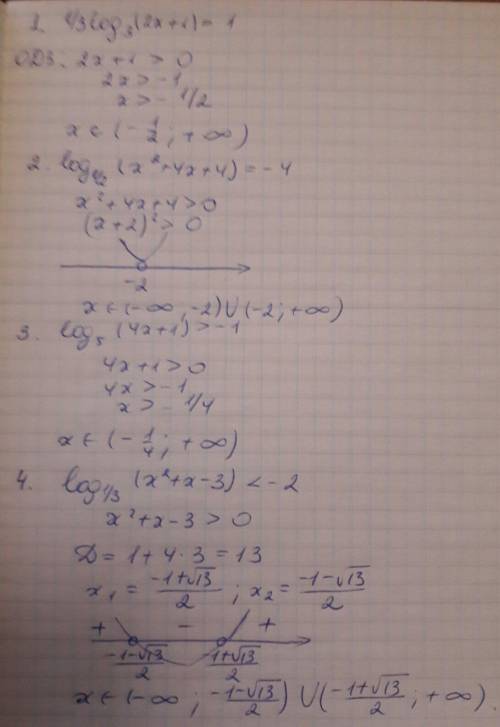 1. 1/3 log₃(2x+1) = 1
ОДЗ: 2x+1 > 0
2x > -1
x > -1/2
x ∈ (-1/2; +∞)
2. log₁/₂ (x²+4x+4) = -4
x²+4x+4 > 0
(x+2)² > 0
-2
x ∈ (-∞; -2) ∪ (-2; +∞)
3. log₅ (4x+1) > -1
4x+1 > 0
4x > -1
x > -1/4
x ∈ (-1/4; +∞)
4. log₁/₃ (x²+x-3) < -2
x²+x-3 > 0
D = 1+4·3 = 13
x₁ = (-1+√13)/2 ; x₂ = (-1-√13)/2
+ - +
(-1-√13)/2 (-1+√13)/2
x ∈ (-∞; (-1-√13)/2) ∪ ((-1+√13)/2; +∞).